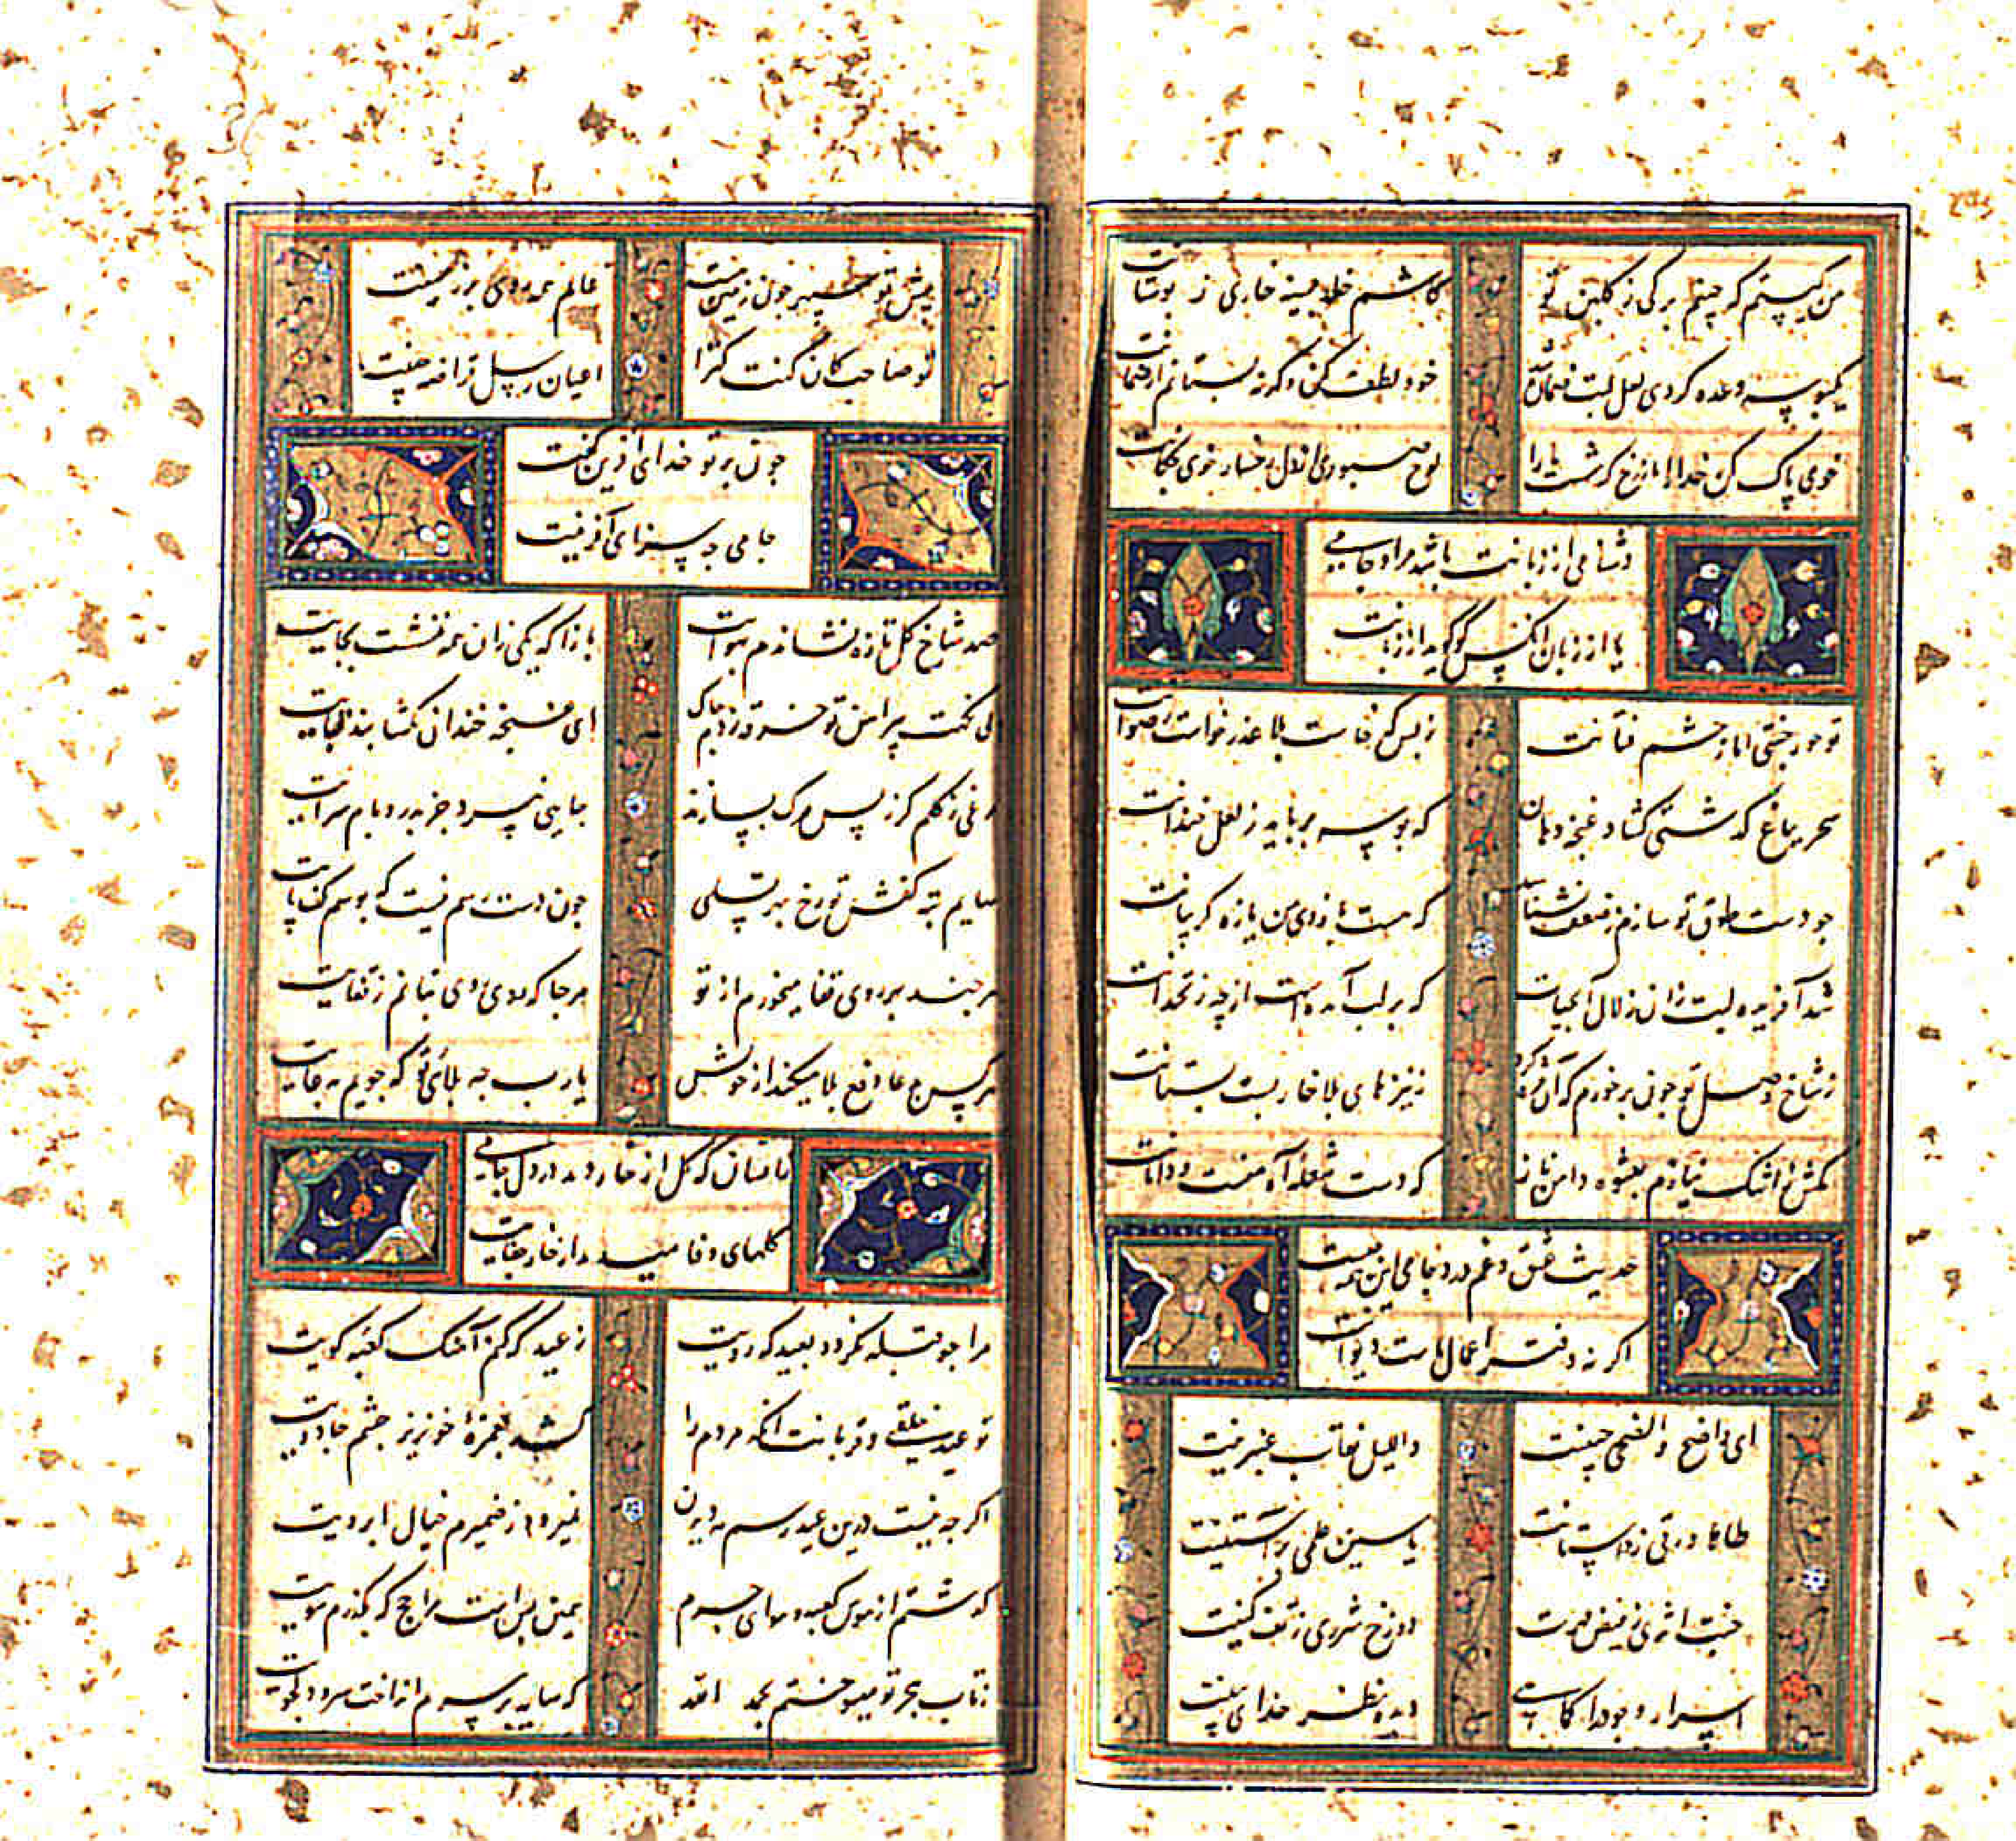 من کیستم که چینم برگی ز گلبن تو
کاشم خلد بسینه خاری ز بوستانت
یکبوسه وعده کردی لعل لبت ضمان
خود لطف کن وگرنه بستانم از ضمانت
خوی پاک کن خدا را از رخ که شست ما را
لوح صبوری از دل رخسار خوی چکانت
دشنامی از زبانت باشد مراد جامی
یا از زبان آنکس کو گوید از زبانت
تو حور جنتی اما ز چشم فتانت
ز بس که خاست بلا عذر خواست رضوانت
سحر بباغ گذشتی گشاد غنچه دهان
که بوسه برباید ز لعل خندانت
چو دست طوق تو سازم ز ضعف نشناسد
که هست بازوی من یا زه گریبانت
شد آفریده لبت زان زلال آبحیات
که بر لب آمده است از چه زنخدانت
ز شاخ وصل تو چون بر خورم که آن
ز نیزهای بلا خاربست بستانت
مکش ز اشک نیازم بعشوه دامن ناز
که دست شعله آه منست و دامانت
حدیث عشق و غم درد جامی این همه چیست
اگر نه دفتر اعمال ماست دیوانت
ای واضح والضحی جبینت
واللیل نقاب عنبرینت
طاها ورقی ز داستانت
یاسین علمی بر آستینت
جنت اثری ز فیض مهرت
دوزخ شرری ز تف کینت
اسرار وجود را کماهی
دیده نظر خدای بینت
پیش تو سپهر چون زمینست
عالم همه روی بر زمینت
تو صاحب کان کنت کنزا
اعیان رسل قراضه چینت
چون بر تو خدای آفرین گفت
جامی چه سزای آفرینت
صد شاخ گل تازه نشاندم بهوایت
بازآ که یکی زان همه ننشست بجایت
نکهت پیراهن تو خرقه زدم چاک
ای غنچه خندان گشا بند قبایت
مرغی ز گلم گر ز پس مرگ بسازند
جایی نپرد جز بدر و بام سرایت
سایم بته کفش تو رخ بهر تسلی
چون دست رسم نیست که بوسم کف پایت
هر چند بر روی قفا میخورم از تو
هر جا که روی روی نتابم ز قفایت
هر کس به دعا دفع بلا میکند از خویش
یارب چه بلائی تو که جویم به دعایت
زانسان که گل از خار دمد در دل جامی
گلهای وفا میدمد از خار جفایت
مرا چو قبله نگردد بعید که رویت
ز عید گه کنم آهنگ کعبه کویت
تو عید خلقی و قربانت آنکه مردم را
کشد بغمزه خونریز چشم جادویت
اگرچه نیست درین عید رسم مه دیدن
نمیرود ز ضمیرم خیال ابرویت
گذشتم از هوس کعبه و هوای حرم
همین بس است مرا حج که بگذرم سویت
ز تاب هجر تو میسوختم بحمد الله
که سایه بر سرم انداخت سرو دلجویت